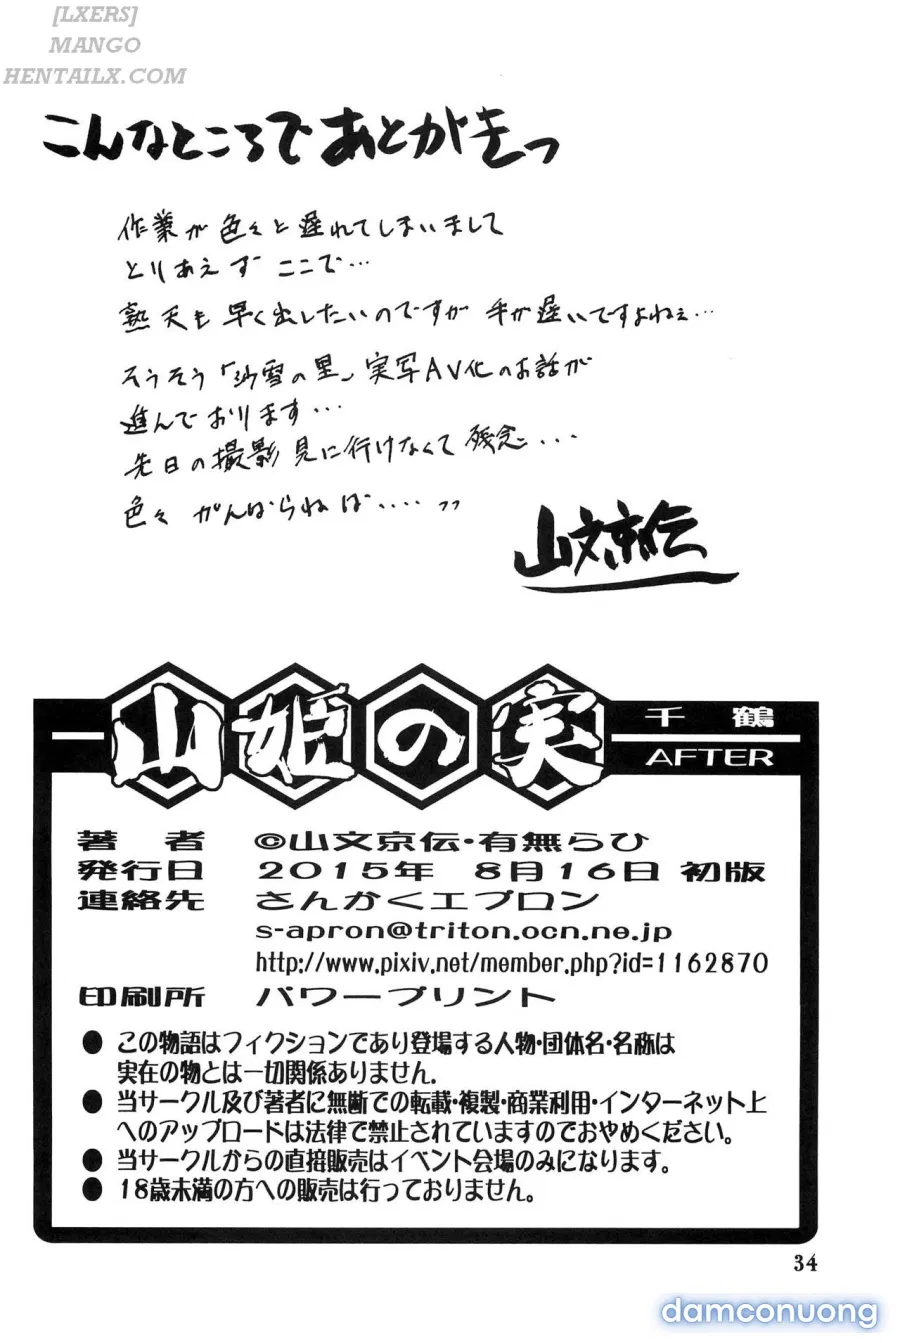 [LXERS]
MANGO
HENTAILX.COM
こんなところであとがきっ
作業が色々と遅れてしまいまして
とりあえず ここで…
熟天も早く出したいのですが 手が遅いですよねぇ…
そうそう「沙雪の里」実写AV化のお話が
進んでおります…
先日の撮影見に行けなくて残念…
色々 がんばらねば…‥ッ
山文京伝
山姫の実
千鶴
AFTER
著者 ©山文京伝・有無らひ
発行日 2015年 8月16日 初版
連絡先 さんかくエプロン
s-apron@triton.ocn.ne.jp
http://www.pixiv.net/member.php?id=1162870
印刷所 パワープリント
● この物語はフィクションであり登場する人物・団体名・名称は
実在の物とは一切関係ありません.
● 当サークル及び著者に無断での転載・複製・商業利用・インターネット上
へのアップロードは法律で禁止されていますのでおやめください。
● 当サークルからの直接販売はイベント会場のみになります。
● 18歳未満の方への販売は行っておりません。
34
damconuong